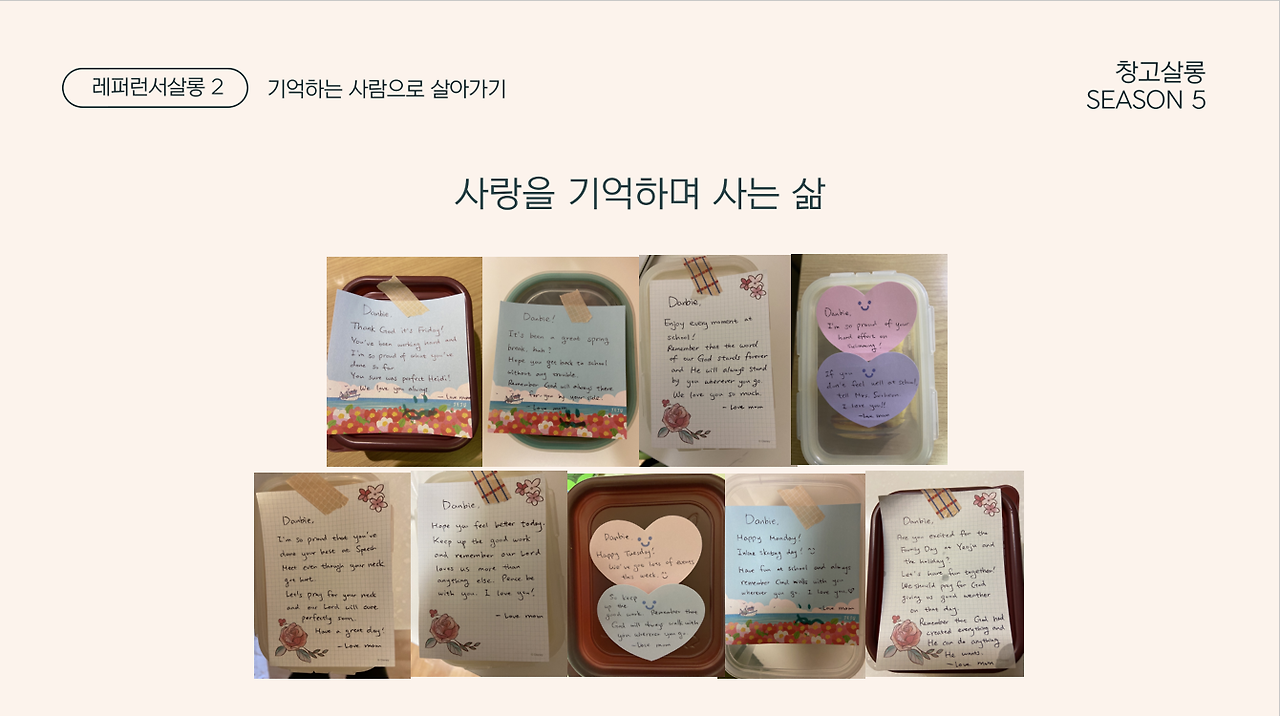 레퍼런서살롱 2
기억하는 사람으로 살아가기
창고살롱
SEASON 5
사랑을 기억하며 사는 삶
Danbie,
Thank God it's Friday!
You've been working hard and
I'm so proud of what you've
done so far
You sure was perfect Heidi!
We love you always.
- Love mom
Danbie!
It's been a great spring
break, huh?
Hope you get back to school
without any trouble.
Remember God will always there
for you by your side.
- Love mom
Danbie,
Enjoy every moment at
school!
Remember that the word
of our God stands forever
and He will always stand
by you wherever you go.
We love you so much.
- Love mom
Danbie,
I'm so proud of your
hard effort on
Swimming!
If you
don't feel well at school,
tell Mrs.
I love you!!
- Love mom
Danbie,
I'm so proud that you've
done your best on Speech
Meet even though your neck
got hurt.
Let's pray for your neck
and our Lord will cure
perfectly soon.
Have a great day!
- Love mom
Danbie,
Hope you feel better today.
Keep up the good work
and remember our Lord
loves us more than
anything else. Peace be
with you. I love you!
- Love mom
Danbie,
Happy Tuesday!
We've got lots of events
this week.
So keep
up the
good work. Remember that
God will always walk with
you wherever you go.
- Love mom
Danbie,
Happy Monday!
Inline skating day!
Have fun at school and always
remember God walks with you
wherever you go. I love you
- Love mom
Danbie,
Are you excited for the
Family Day at Yonja and
the holiday?
Let's have fun together!
We should pray for God
giving us good weather
on that day.
Remember the God had
created everything and
He can do anything
He wants.
- Love mom